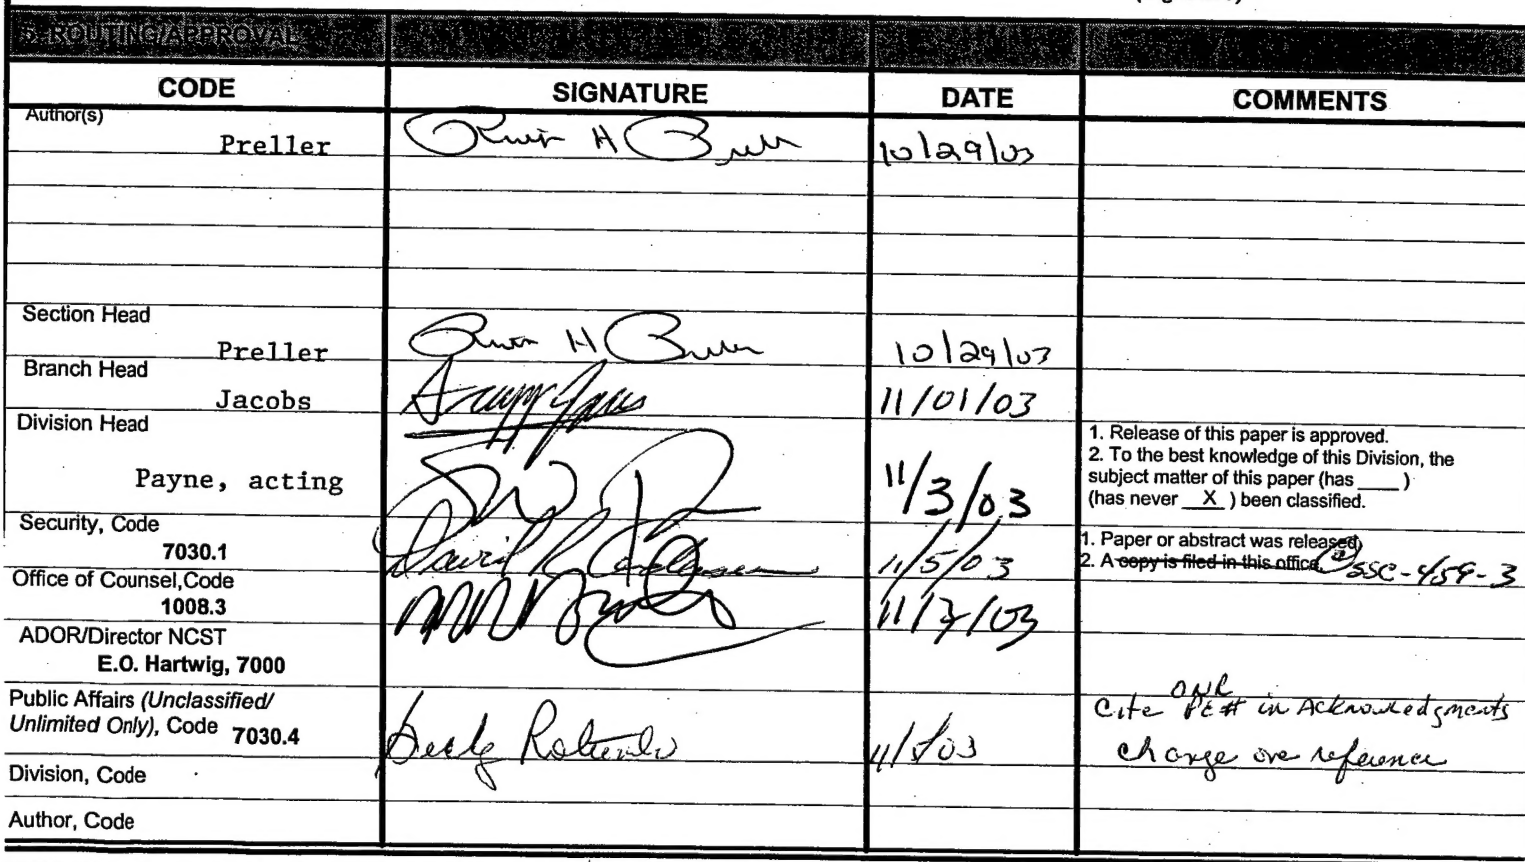 5. ROUTING/APPROVAL
CODE SIGNATURE DATE COMMENTS
Author(s)
Preller H 10/29/03
Section Head
Preller H 10/29/03
Branch Head
Jacobs 11/01/03
Division Head
1. Release of this paper is approved.
2. To the best knowledge of this Division, the
Payne, acting 11/3/03 subject matter of this paper (has ____ )
(has never X ) been classified.
Security, Code
1. Paper or abstract was released.
7030.1 David R 11/5/03 2. A copy is filed in this office SSC-459-3
Office of Counsel,Code
1008.3 11/7/03
ADOR/Director NCST
E.O. Hartwig, 7000
Public Affairs (Unclassified/
Unlimited Only), Code 7030.4
ONR
Cite PE# in Acknowledgments
change one reference
Division, Code
Author, Code